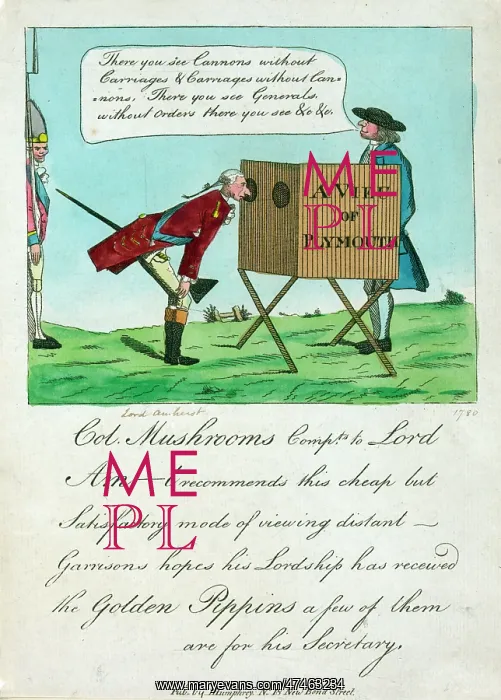 There you see Cannons without
Carriages & Carriages without Can=
=nons. There you see Generals.
without Orders there you see &c &c.
A VIEW
OF
PLYMOUTH
ME
PL
Lord Amherst
1780
Col. Mushrooms Compts. to Lord
Am——t recommends this cheap but
Satisfactory mode of viewing distant —
Garrisons hopes his Lordship has received
the Golden Pippins a few of them
are for his Secretary.
ME
PL
Pub. by Humphrey N. 18 New Bond Street.
www.maryevans.com/47469294